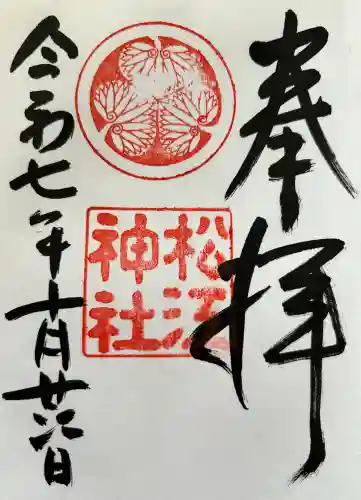 奉拝
松江
神社
令和七年十月廿六日